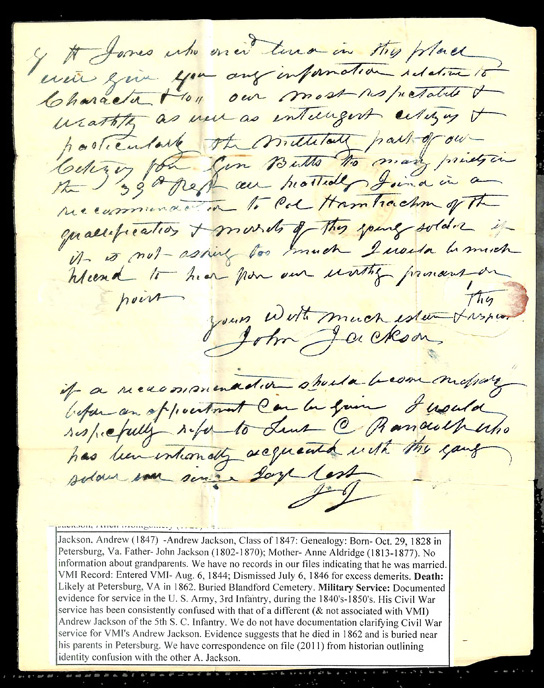 Jones who once lived in this place
will give you any information relative to
Character & to our most respectable &
wealthy as well as intelligent citizens &
particularly the military part of our
Citizens from Gen Butts to many privates in
the 39th Regt all partially Joined in a
recommendation to Col Hamtrack of the
qualification & morals of this young soldier if
it is not asking too much I would be much
pleased to hear from our worthy president on
this
point
yours with much esteem & respect
John Jackson
if a recommendation should become necessary
before an appointment can be given I would
respectfully refer to Lieut C Randolph who
has been intimately acquainted with this young
soldier ever since last
J J
Jackson, Andrew (1847) -Andrew Jackson, Class of 1847: Genealogy: Born- Oct. 29, 1828 in
Petersburg, Va. Father- John Jackson (1802-1870); Mother- Anne Aldridge (1813-1877). No
information about grandparents. We have no records in our files indicating that he was married.
VMI Record: Entered VMI- Aug. 6, 1844; Dismissed July 6, 1846 for excess demerits. Death:
Likely at Petersburg, VA in 1862. Buried Blandford Cemetery. Military Service: Documented
evidence for service in the U. S. Army, 3rd Infantry, during the 1840's-1850's. His Civil War
service has been consistently confused with that of a different (& not associated with VMI)
Andrew Jackson of the 5th S. C. Infantry. We do not have documentation clarifying Civil War
service for VMI's Andrew Jackson. Evidence suggests that he died in 1862 and is buried near
his parents in Petersburg. We have correspondence on file (2011) from historian outlining
identity confusion with the other A. Jackson.